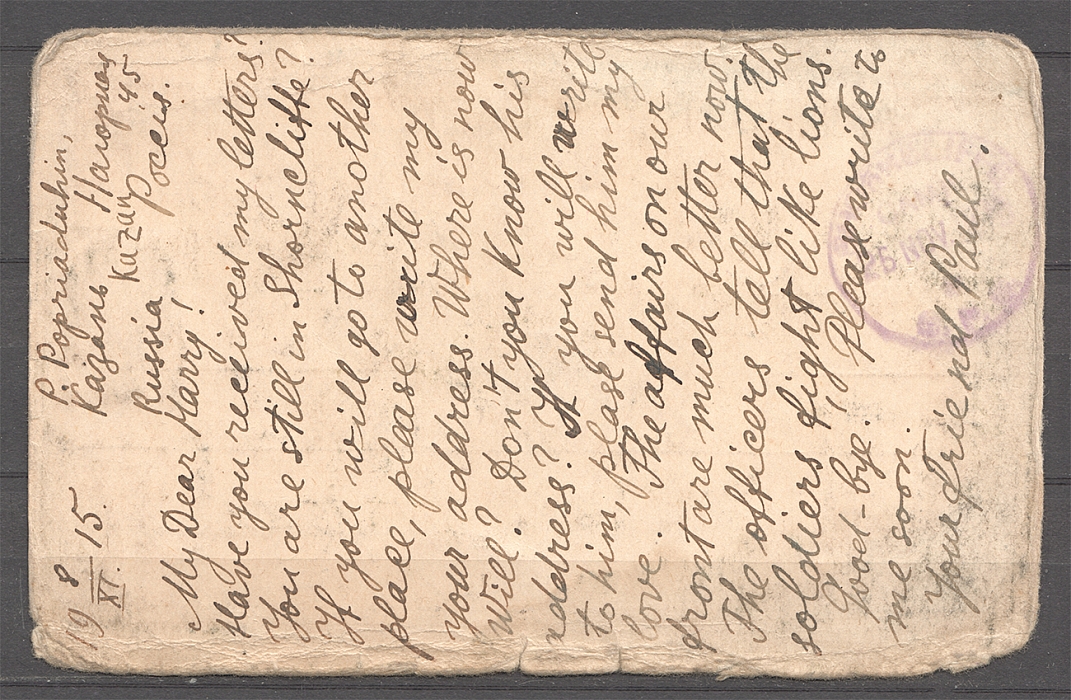 19 8/XI. 15.
P. Popriaduhin,
Казань
Kazan
45
Russia
Россия.
My Dear Harry!
Have you received my letters?
You are still in Shorncliffe?
If you will go to another
place, please write my
your address. Where is now
Will? Don't you know his
address? If you will write
to him, please send him my
love. The affairs on our
front are much better now.
The officers tell that the
soldiers fight like lions.
Good-bye. Please write to
me soon.
Your friend Paul.